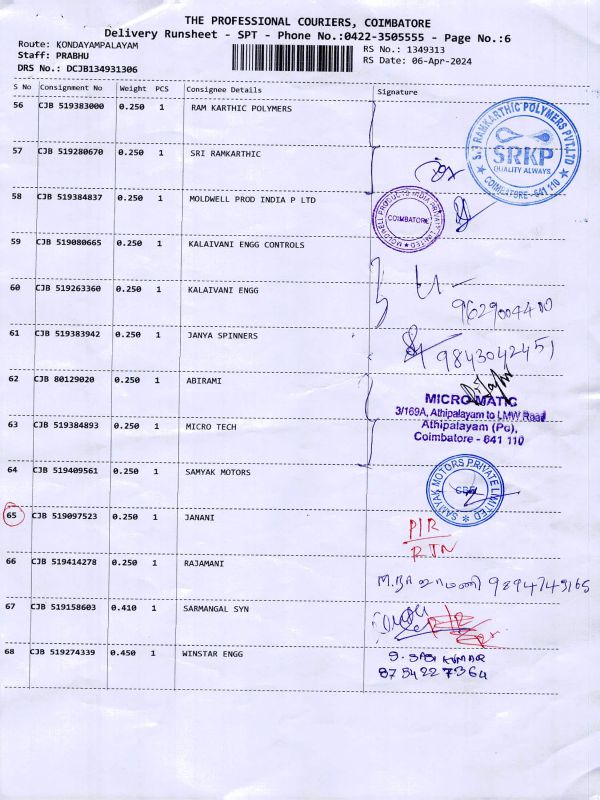 THE PROFESSIONAL COURIERS, COIMBATORE
Delivery Runsheet - SPT - Phone No.:0422-3505555 - Page No.:6
Route: KONDAYAMPALAYAM
Staff: PRABHU
DRS No.: DCJB134931306
RS No.: 1349313
RS Date: 06-Apr-2024
S No Consignment No Weight PCS Consignee Details Signature
56 CJB 519383000 0.250 1 RAM KARTHIC POLYMERS
57 CJB 519280670 0.250 1 SRI RAMKARTHIC
SRI RAMKARTHIC POLYMERS PVT.LTD
SRKP
QUALITY ALWAYS
COIMBATORE - 641 110
58 CJB 519384837 0.250 1 MOLDWELL PROD INDIA P LTD
MOLDWELL PRODUCTS INDIA PRIVATE LIMITED
COIMBATORE
59 CJB 519080665 0.250 1 KALAIVANI ENGG CONTROLS
60 CJB 519263360 0.250 1 KALAIVANI ENGG
61 CJB 519383942 0.250 1 JANYA SPINNERS
9843042451
62 CJB 80129020 0.250 1 ABIRAMI
63 CJB 519384893 0.250 1 MICRO TECH
MICRO-MATIC
3/169A, Athipalayam to LMW Road
Athipalayam (Po),
Coimbatore - 641 110
64 CJB 519409561 0.250 1 SAMYAK MOTORS
SAMYAK MOTORS PRIVATE LIMITED
65 CJB 519097523 0.250 1 JANANI
P/R
RTN
66 CJB 519414278 0.250 1 RAJAMANI
67 CJB 519158603 0.410 1 SARMANGAL SYN
68 CJB 519274339 0.450 1 WINSTAR ENGG
S. SASIKUMAR
8754227364